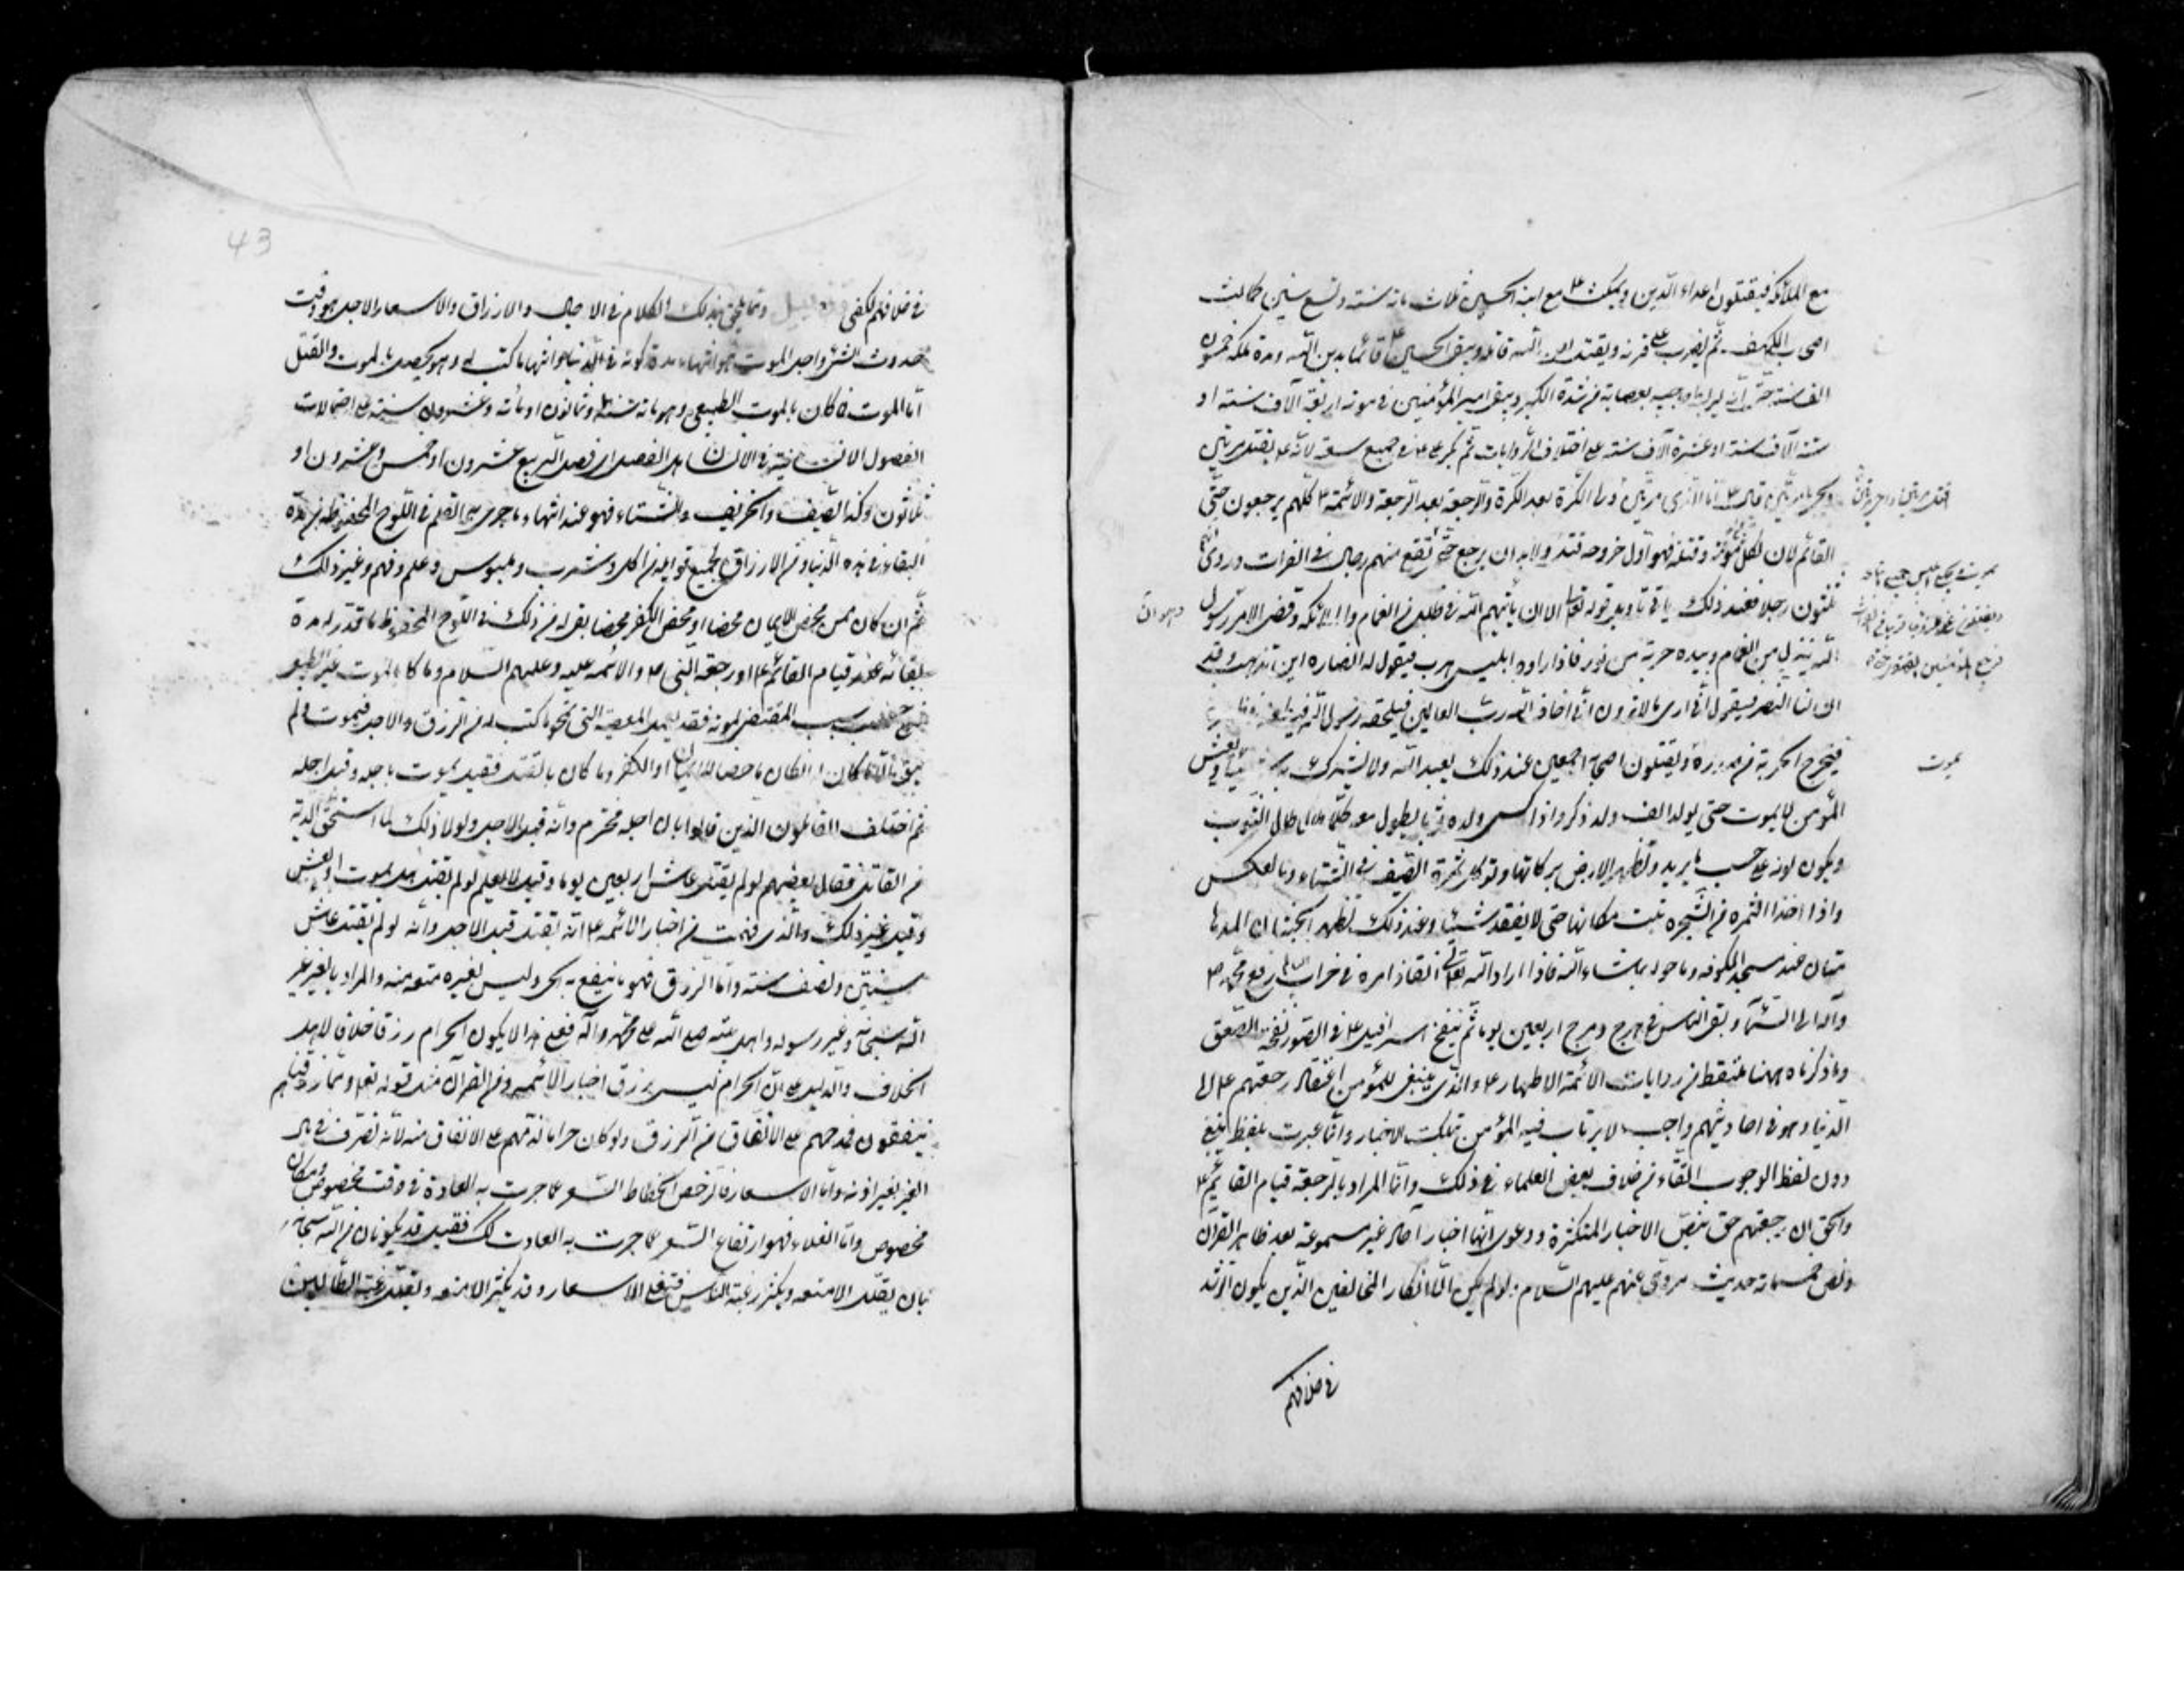 مع الملائكة فيقتلون اعداء الدّين ويمكث ع مع ابنه الحسين ثلاث مائة سنة وتسع سنين كما لبث
اصحاب الكهف ثم يضرب على قرنه ويقتل لعن الله قاتله ويبقى الحسين ع قائما بدين الله ومدة ملكه خمسون
الف سنة حتّى انّه ليربط حاجبيه بعصابة من شدة الكبر ويبقى امير المؤمنين في موته اربعة آلاف سنة او
ستة آلاف سنة او عشرة آلاف سنة على اختلاف الروايات ثم يكر علي ع في جميع شيعته لانّه ع يقتل مرتين
ويحيى مرتين قال ع انا الذي اقتل مرتين ولى الكرة بعد الكرة والرجعة بعد الرجعة والائمة ع كلّهم يرجعون حتّى
القائم لان لكل مؤمن موتة وقتلة فهو اول خروجه قتل ولا بد ان يرجع حتى يقع منهم رجال في الفرات وروى انهم
ثلثون رجلا فعند ذلك ياتي تاويل قوله تعالى الا ان يأتيهم الله في ظلل من الغمام والملائكة وقضى الامر رسول
الله ينزل من الغمام وبيده حربة من نور فاذا راه ابليس هرب فيقول له انصاره اين تذهب وقد
ان لنا النصر فيقول انى ارى مالا ترون انى اخاف الله رب العالمين فيلحقه رسول الله فيطعنه
فيخرج الحربة من صدره ويقتلون اصحابه اجمعين عند ذلك يعبد الله ولا يشرك به شيئا ويعيش
المؤمن لا يموت حتى يولد الف ولد ذكر واذا كسى ولده ثوبا يطول معه كلّما طال طال الثوب
ويكون لونه على حسب ما يريد وتظهر الارض بركاتها وتوكل ثمرة الصّيف في الشتاء وبالعكس
واذا اخذ الثمرة من الشّجرة نبت مكانها حتى لا يفقد شيئا وعند ذلك تظهر الجنتان المدها
متان عند مسجد الكوفة وما حوله بما شاء الله فاذا اراد الله تعالى انفاذ امره في خراب العالم رفع محمّد ص
وآله الى السّماء وبقى الناس في هرج ومرج اربعين يوما ثم ينفخ اسرافيل ع في الصّور نفخة الصّعق
وما ذكرناه ههنا ملتقط من روايات الائمّة الاطهار ع والّذي ينبغي للمؤمن اعتقاد رجعتهم ع الى
الدنيا وهو في احاديثهم واجب لا يرتاب فيه المؤمن بتلك الاخبار وانّما عبرت بلفظ ينبغي
دون لفظ الوجوب اتقاء من خلاف بعض العلماء في ذلك وانّما المراد بالرجعة قيام القائم ع
والحق ان رجعتهم حق بنصّ الاخبار المتكثرة ودعوى انّها اخبار آحاد غير مسموعة بعد ظاهر القرآن
ونص خمسمائة حديث مروىّ عنهم عليهم السّلام ولو لم يكن الّا انكار المخالفين الّذين يكون الرشد
في خلافهم
قتل مرتين واحى مرتين
يموت
في خلافهم لكفى ومما يلحق بذلك الكلام في الاجال والارزاق والاسعار الاجل هو وقت
حدوث الشئ واجل الموت هو انتهاء مدة كونه في الدنيا وانتهاء ما كتب له وهو يحصل بالموت والقتل
امّا الموت فان كان بالموت الطبيعى وهو مائة سنة وثمانون او مائة وعشرون سنة على احتمالات
الفصول الانسانية في الانسان هل الفصل اى فصل الربيع عشرون او خمس وعشرون او
ثلاثون وكذا الصّيف والخريف والشتاء فهو عند انتهاء ما جرى به القلم في اللّوح المحفوظ من مدة
البقاء في هذه الدنيا ومن الارزاق بجميع قوابله من اكل وشرب وملبوس وعلم وفهم وغير ذلك
ثم ان كان ممن محض الايمان محضا او محض الكفر محضا بقى له من ذلك في اللّوح المحفوظ ما قدّر له مدة
بقائه عند قيام القائم ع او رجعة النّبى ص والائمة عليه وعليهم السّلام وما كان بالموت غير الطبيعى
فبحسب سبب المقتضى لموته فقد يعمل المعصية التى تمحو ما كتب له من الرزق والاجل فيموت ولم
يبق له الا ما كان له ان كان ماحضا للايمان او الكفر وما كان بالقتل فقيل يموت باجله وقيل اجله
ثم اختلف القائلون الذين قالوا بان اجله مخترم وانه قبل الاجل ولولا ذلك لما استحق الدية
من القاتل فقال بعضهم لو لم يقتل عاش اربعين يوما وقيل لا يعلم لو لم يقتل هل يموت او يعيش
وقيل غير ذلك والّذى فهمت من اخبار الائمة ع انّه يقتل قبل الاجل وانه لو لم يقتل عاش
سنتين ونصف سنة وامّا الرزق فهو ما ينتفع به الحى وليس لغيره منعه منه والمراد بالغير غير
الله سبحانه وغير رسوله واهل بيته صلى الله على محمّد وآله فعلى هذا لا يكون الحرام رزقا خلافا لاهل
الخلاف والدليل على انّ الحرام ليس برزق اخبار الائمة ومن القرآن مثل قوله تعالى وممّا رزقناهم
ينفقون فمدحهم على الانفاق من الرزق ولو كان حراما لذمّهم على الانفاق منه لانّه تصرف في مال
الغير بغير اذنه وامّا الاسعار فالرخص انحطاط السّعر عما جرت به العادة في وقت مخصوص ومكان
مخصوص وامّا الغلاء فهو ارتفاع السّعر عما جرت به العادة كك فقيل قد يكونان من الله سبحانه
بان يقلّل الامتعة ويكثر رغبة الناس فتغلى الاسعار وقد يكثر الامتعة ويقلّل رغبة الطّالبين
43